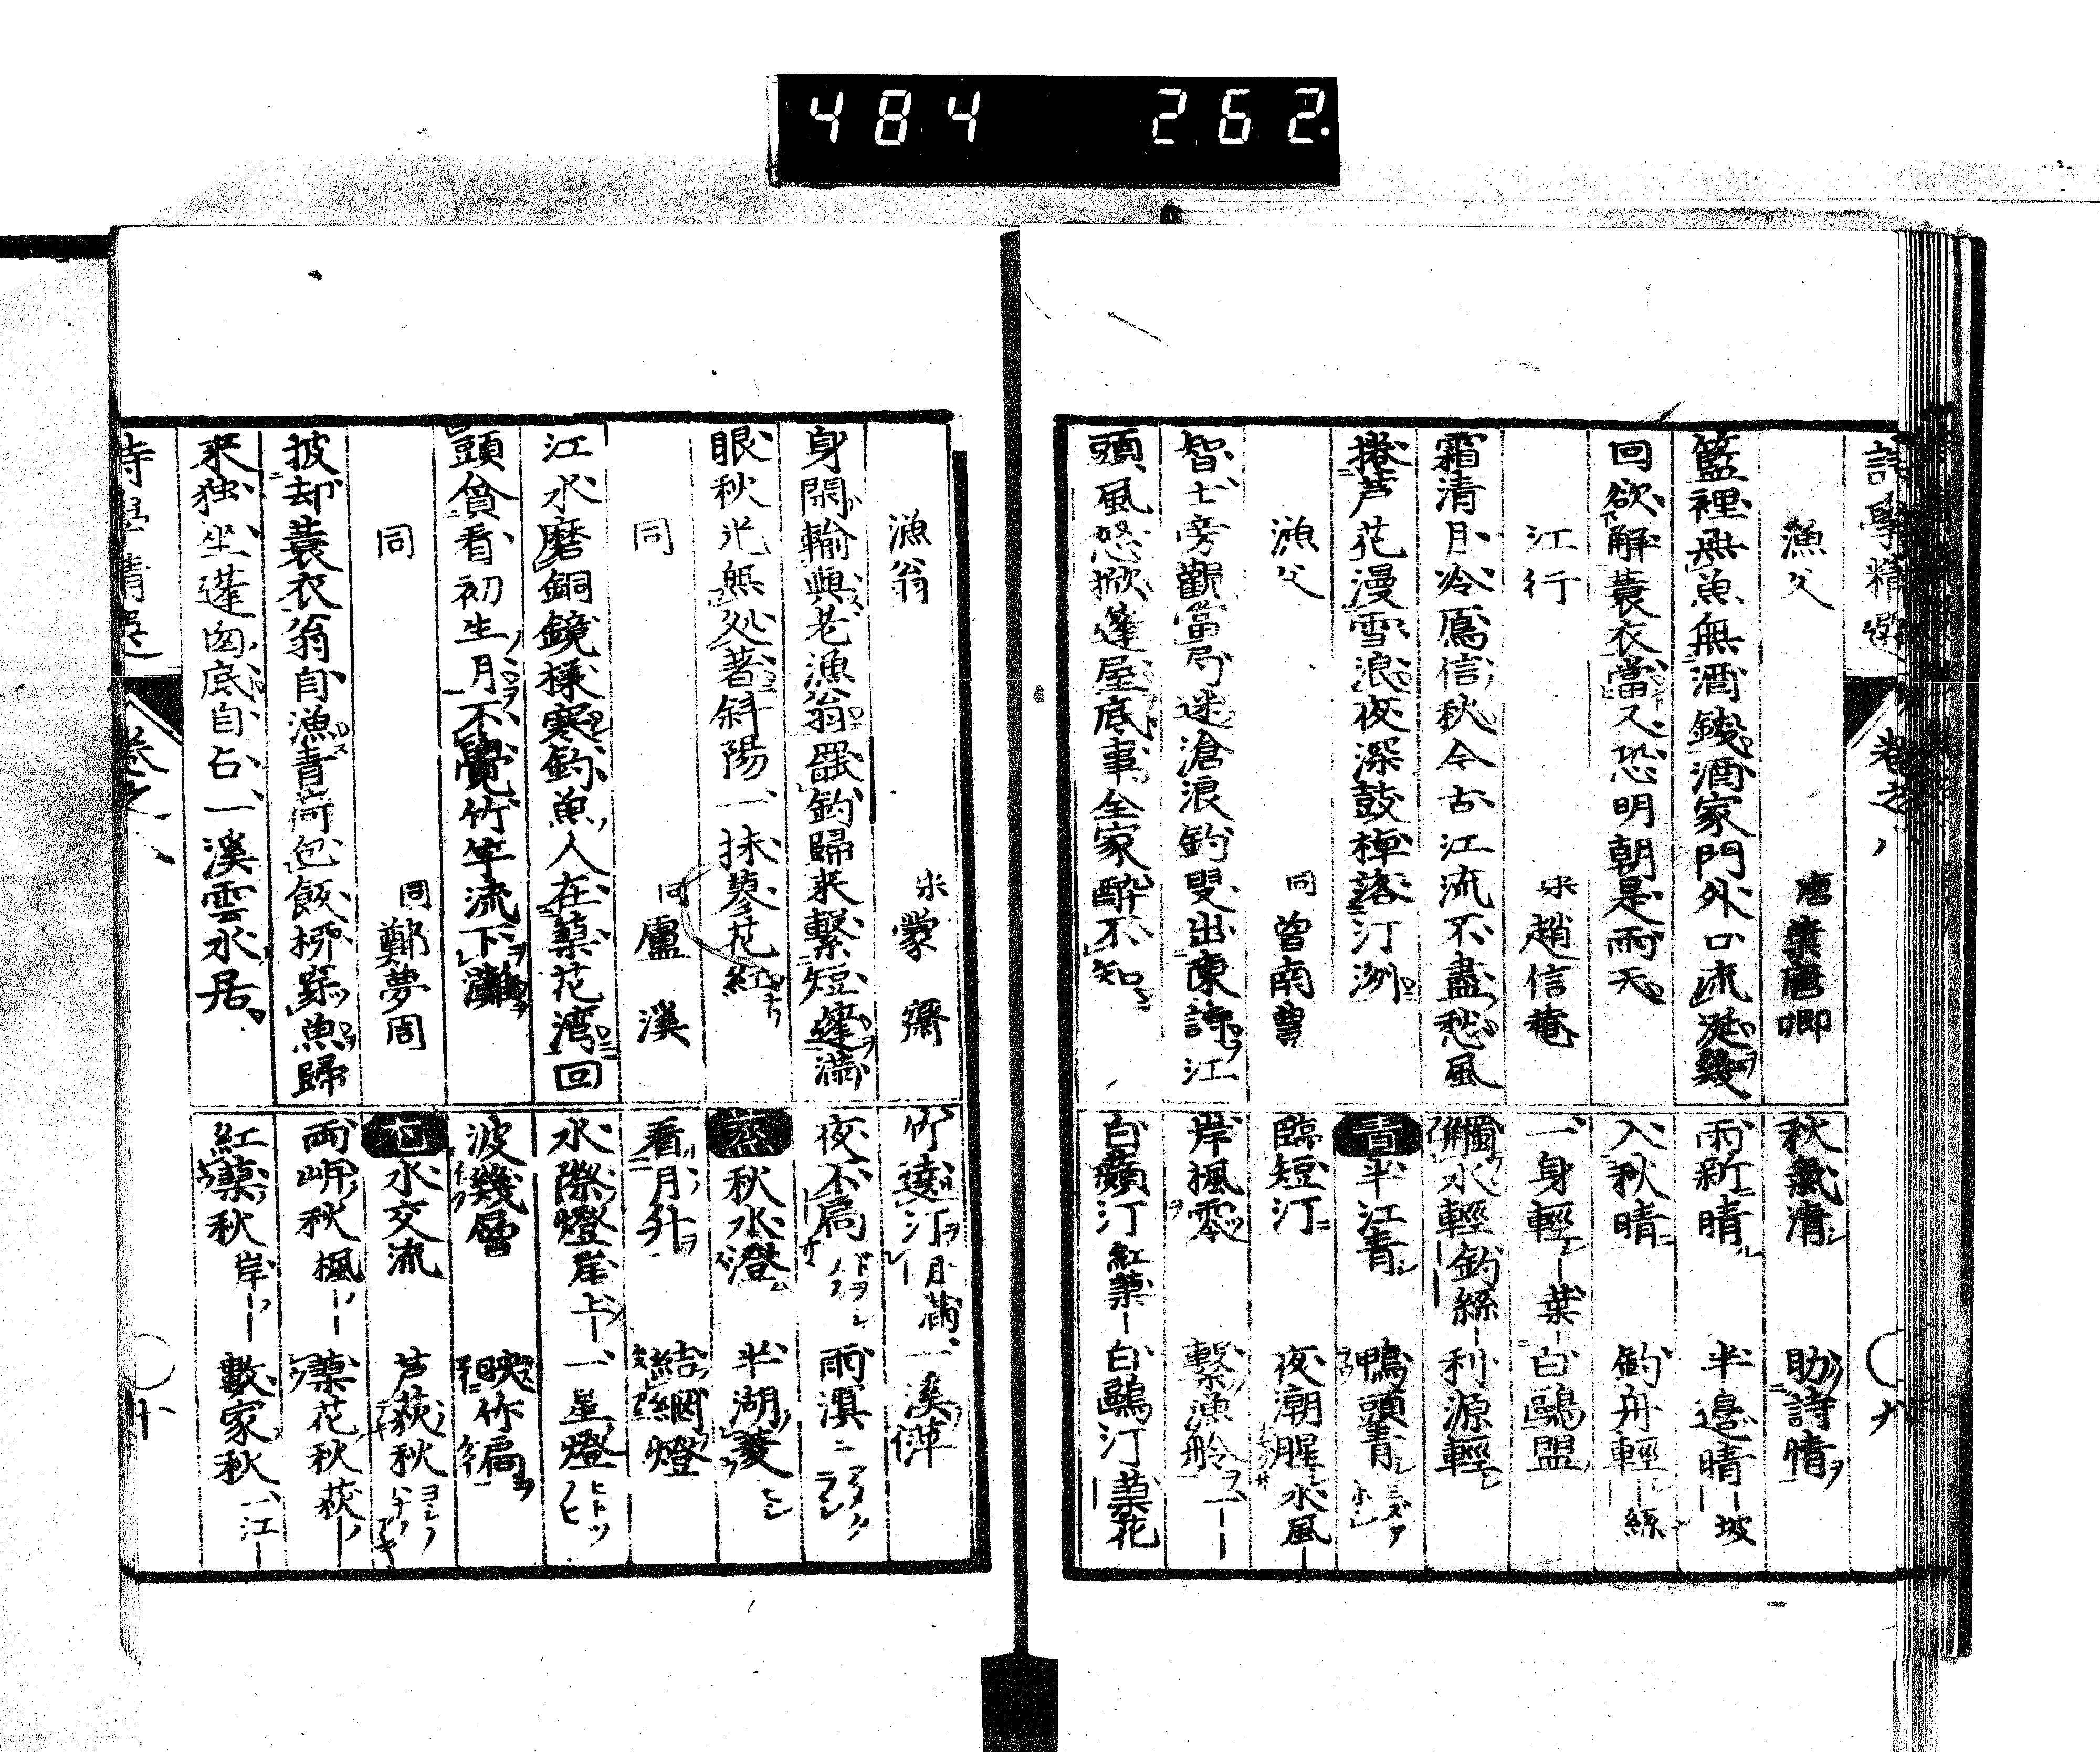 484 262.
漁父 唐葉唐卿
籃裡無魚無酒錢酒家門外口流涎幾
回欲解蓑衣當又恐明朝是雨天
江行 宋趙信菴
霜清月冷鴈信秋今古江流不盡愁風
捲芦花漫雪浪夜深鼓棹落汀洲
漁父 同曽南豊
智士旁觀當局迷滄浪釣叟出陳詩江
頭風怒掀篷屋底事全家醉不知
秋氣清 助詩情
雨新晴 半邊晴 坡
入秋晴 釣舟輕 絲
一身輕 葉 白鷗盟
水輕 釣絲 利源輕
青 半江青 鴨頭青
臨短汀 夜潮腥 水風
岸楓零 繋漁舲
白蘋汀 紅蓼 白鷗汀 蓼花
漁翁 宋蒙齋
身閑輸與老漁翁罷釣歸来繋短篷滿
眼秋光無処著斜陽一抹蓼花紅
同 同盧溪
江水磨銅鏡樣寒釣魚人在蓼花湾回
頭貪看初生月不覺竹竿流下灘
同 同鄭夢周
披却蓑衣翁自漁青荷包飯柳穿魚歸
来独坐蓬囱底自占一溪雲水居
竹遶汀 月滿 一溪萍
夜不扃 雨溟
蒸 秋水澄 半湖菱
看月升 結網燈
水際燈 崖上 一星燈 ヒトツ
波幾層 映竹扁
尤 水交流 芦荻秋
両岸秋 楓 蓼花秋 荻
紅蓼秋 岸 數家秋 江
十